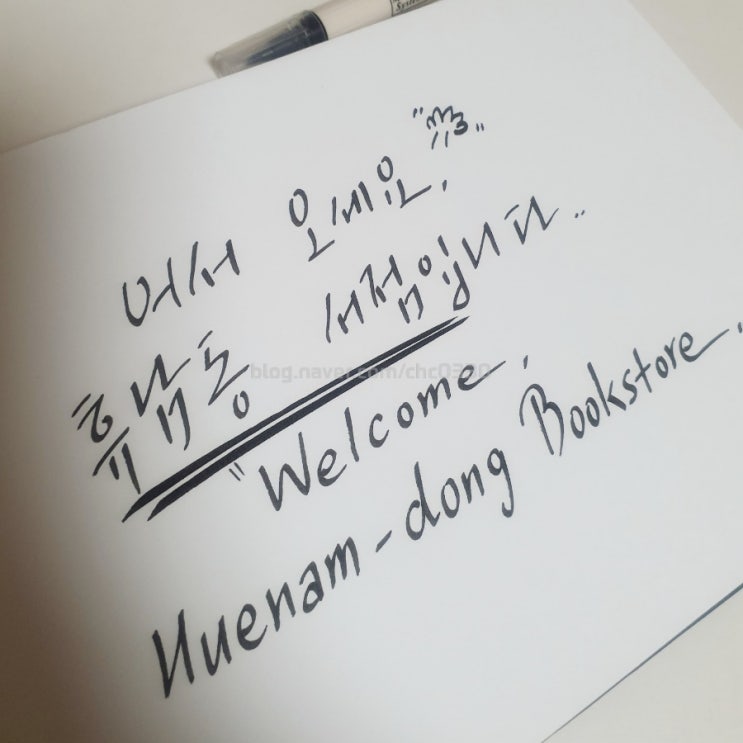 어서 오세요,
휴남동 서점입니다..
"Welcome,
Huenam-dong Bookstore.